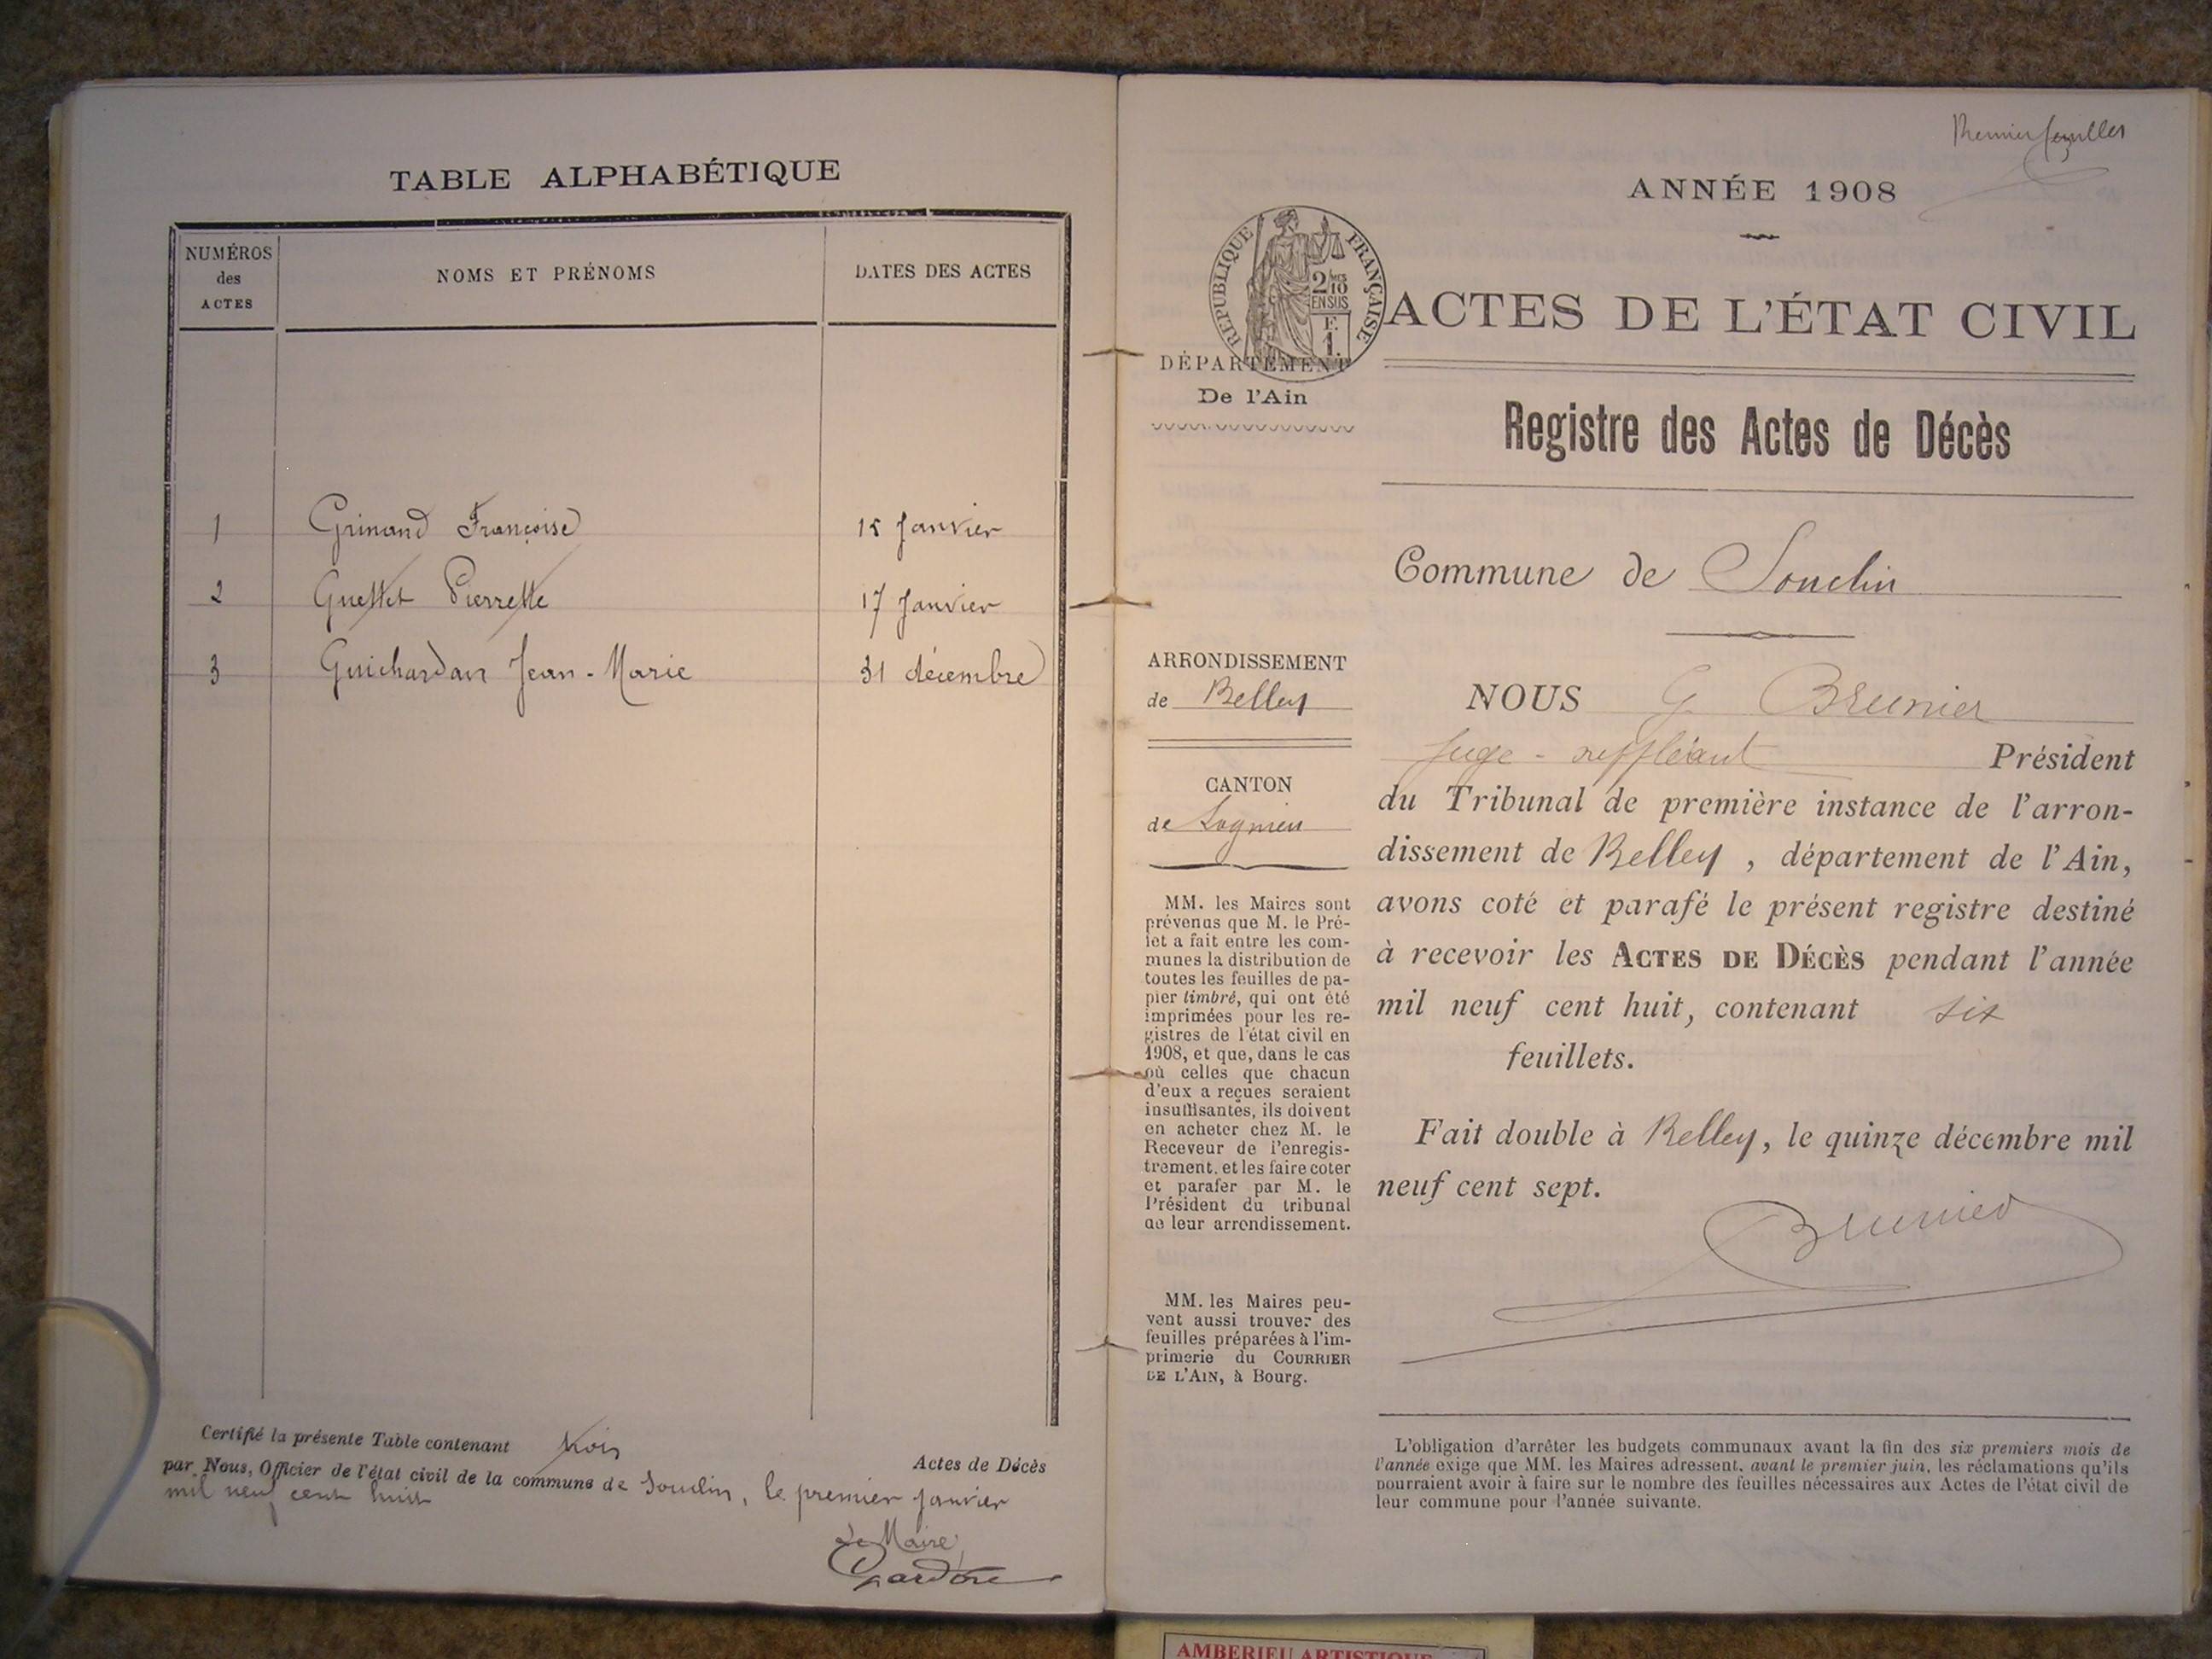 TABLE ALPHABÉTIQUE
NUMÉROS
des
ACTES
NOMS ET PRÉNOMS
DATES DES ACTES
1 Grinand Françoise 15 Janvier
2 Guettet Pierrette 17 Janvier
3 Guichardan Jean-Marie 31 décembre
Certifié la présente Table contenant trois Actes de Décès
par Nous, Officier de l'état civil de la commune de Souclin, le premier Janvier
mil neuf cent huit
Le Maire,
Premier feuillet
ANNÉE 1908
RÉPUBLIQUE FRANÇAISE
2/10
EN SUS
F.
1.
ACTES DE L'ÉTAT CIVIL
DÉPARTEMENT
De l'Ain
Registre des Actes de Décès
Commune de Souclin
ARRONDISSEMENT
de Belley
CANTON
de Lagnieu
MM. les Maires sont
prévenus que M. le Pré-
fet a fait entre les com-
munes la distribution de
toutes les feuilles de pa-
pier timbré, qui ont été
imprimées pour les re-
gistres de l'état civil en
1908, et que, dans le cas
où celles que chacun
d'eux a reçues seraient
insuffisantes, ils doivent
en acheter chez M. le
Receveur de l'enregis-
trement, et les faire coter
et parafer par M. le
Président du tribunal
de leur arrondissement.
MM. les Maires peu-
vent aussi trouver des
feuilles préparées à l'im-
primerie du COURRIER
DE L'AIN, à Bourg.
NOUS G Brunier
Juge-suppléant Président
du Tribunal de première instance de l'arron-
dissement de Belley, département de l'Ain,
avons coté et parafé le présent registre destiné
à recevoir les ACTES DE DÉCÈS pendant l'année
mil neuf cent huit, contenant six
feuillets.
Fait double à Belley, le quinze décembre mil
neuf cent sept.
Brunier
L'obligation d'arrêter les budgets communaux avant la fin des six premiers mois de
l'année exige que MM. les Maires adressent, avant le premier juin, les réclamations qu'ils
pourraient avoir à faire sur le nombre des feuilles nécessaires aux Actes de l'état civil de
leur commune pour l'année suivante.
AMBERIEU ARTISTIQUE